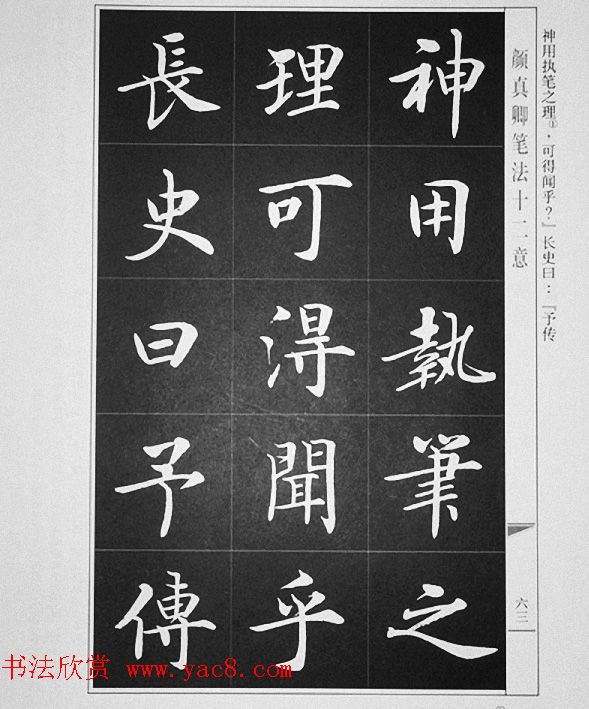 神用执笔之理①，可得闻乎？』长史曰：『予传
颜真卿笔法十二意
六三
神用執筆之
理可淂聞乎
長史曰予傳
书法欣赏 www.yac8.com
①